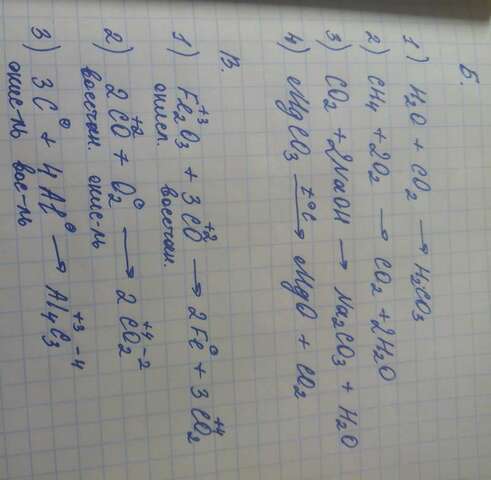 Б.
1) H₂O + CO₂ → H₂CO₃
2) CH₄ + 2O₂ → CO₂ + 2H₂O
3) CO₂ + 2NaOH → Na₂CO₃ + H₂O
4) MgCO₃ —t°C→ MgO + CO₂
В.
+3 +2 0 +4
1) Fe₂O₃ + 3CO → 2Fe + 3CO₂
окисл. восстан.
+2 0 +4 -2
2) 2CO + O₂ → 2CO₂
восстан. окис-ль
0 0 +3 -4
3) 3C + 4Al → Al₄C₃
окис-ль вос-ль